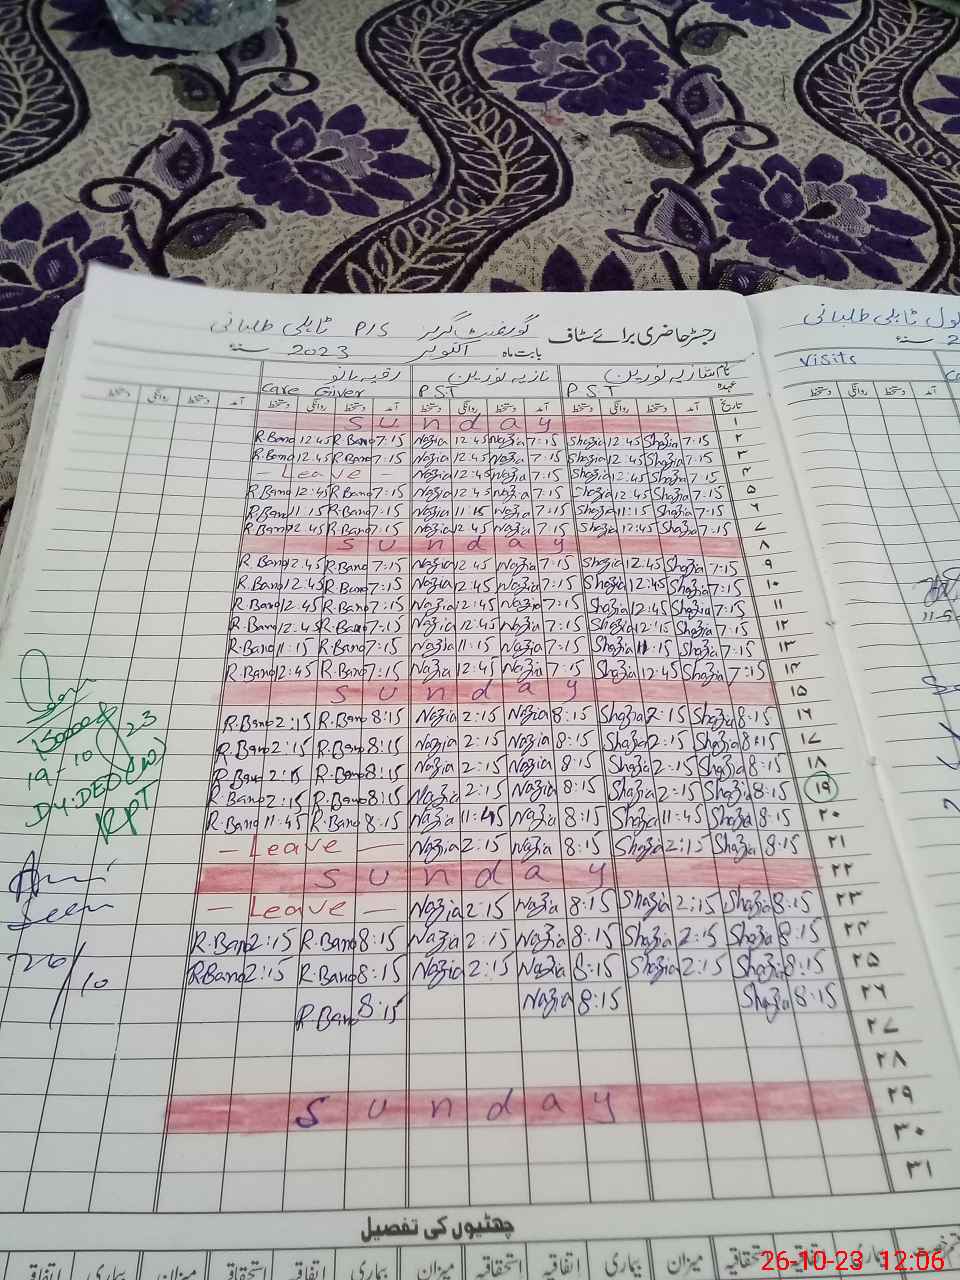 رجسٹر حاضری برائے سٹاف گورنمنٹ گرلز P/S ٹاہلی طلبانی
بابت ماہ اکتوبر 2023 سنہء
نام شازیہ نورین نازیہ نورین رقیہ بانو
عہدہ PST PST Care Giver
تاریخ آمد دستخط روانگی دستخط آمد دستخط روانگی دستخط آمد دستخط روانگی دستخط آمد دستخط روانگی دستخط
۱ Sunday
R.Bano 12:45 R.Bano 7:15 Nazia 12:45 Nazia 7:15 Shazia 12:45 Shazia 7:15 ۲
R.Bano 12:45 R.Bano 7:15 Nazia 12:45 Nazia 7:15 Shazia 12:45 Shazia 7:15 ۳
- Leave - Nazia 12:45 Nazia 7:15 Shazia 12:45 Shazia 7:15 ۴
R.Bano 12:45 R.Bano 7:15 Nazia 12:45 Nazia 7:15 Shazia 12:45 Shazia 7:15 ۵
R.Bano 11:15 R.Bano 7:15 Nazia 11:15 Nazia 7:15 Shazia 11:15 Shazia 7:15 ۶
R.Bano 12:45 R.Bano 7:15 Nazia 12:45 Nazia 7:15 Shazia 12:45 Shazia 7:15 ۷
Sunday ۸
R.Bano 12:45 R.Bano 7:15 Nazia 12:45 Nazia 7:15 Shazia 12:45 Shazia 7:15 ۹
R.Bano 12:45 R.Bano 7:15 Nazia 12:45 Nazia 7:15 Shazia 12:45 Shazia 7:15 ۱۰
R.Bano 12:45 R.Bano 7:15 Nazia 12:45 Nazia 7:15 Shazia 12:45 Shazia 7:15 ۱۱
R.Bano 12:45 R.Bano 7:15 Nazia 12:45 Nazia 7:15 Shazia 12:15 Shazia 7:15 ۱۲
R.Bano 11:15 R.Bano 7:15 Nazia 11:15 Nazia 7:15 Shazia 11:15 Shazia 7:15 ۱۳
R.Bano 12:45 R.Bano 7:15 Nazia 12:45 Nazia 7:15 Shazia 12:45 Shazia 7:15 ۱۴
Sunday ۱۵
R.Bano 2:15 R.Bano 8:15 Nazia 2:15 Nazia 8:15 Shazia 2:15 Shazia 8:15 ۱۶
R.Bano 2:15 R.Bano 8:15 Nazia 2:15 Nazia 8:15 Shazia 2:15 Shazia 8:15 ۱۷
R.Bano 2:15 R.Bano 8:15 Nazia 2:15 Nazia 8:15 Shazia 2:15 Shazia 8:15 ۱۸
R.Bano 2:15 R.Bano 8:15 Nazia 2:15 Nazia 8:15 Shazia 2:15 Shazia 8:15 ۱۹
R.Bano 11:45 R.Bano 8:15 Nazia 11:45 Nazia 8:15 Shazia 11:45 Shazia 8:15 ۲۰
- Leave - Nazia 2:15 Nazia 8:15 Shazia 2:15 Shazia 8:15 ۲۱
Sunday ۲۲
- Leave - Nazia 2:15 Nazia 8:15 Shazia 2:15 Shazia 8:15 ۲۳
R.Bano 2:15 R.Bano 8:15 Nazia 2:15 Nazia 8:15 Shazia 2:15 Shazia 8:15 ۲۴
R.Bano 2:15 R.Bano 8:15 Nazia 2:15 Nazia 8:15 Shazia 2:15 Shazia 8:15 ۲۵
R.Bano 8:15 Nazia 8:15 Shazia 8:15 ۲۶
۲۷
۲۸
Sunday ۲۹
۳۰
۳۱
19-10 23
DY:DEO(W)
RPT
Seen
26/10
چھٹیوں کی تفصیل
اتفاقیہ بیماری میزان استحقاقیہ اتفاقیہ بیماری میزان استحقاقیہ اتفاقیہ بیماری میزان استحقاقیہ اتفاقیہ بیماری
ٹاہلی طلبانی
سنہء
Visits
26-10-23 12:06